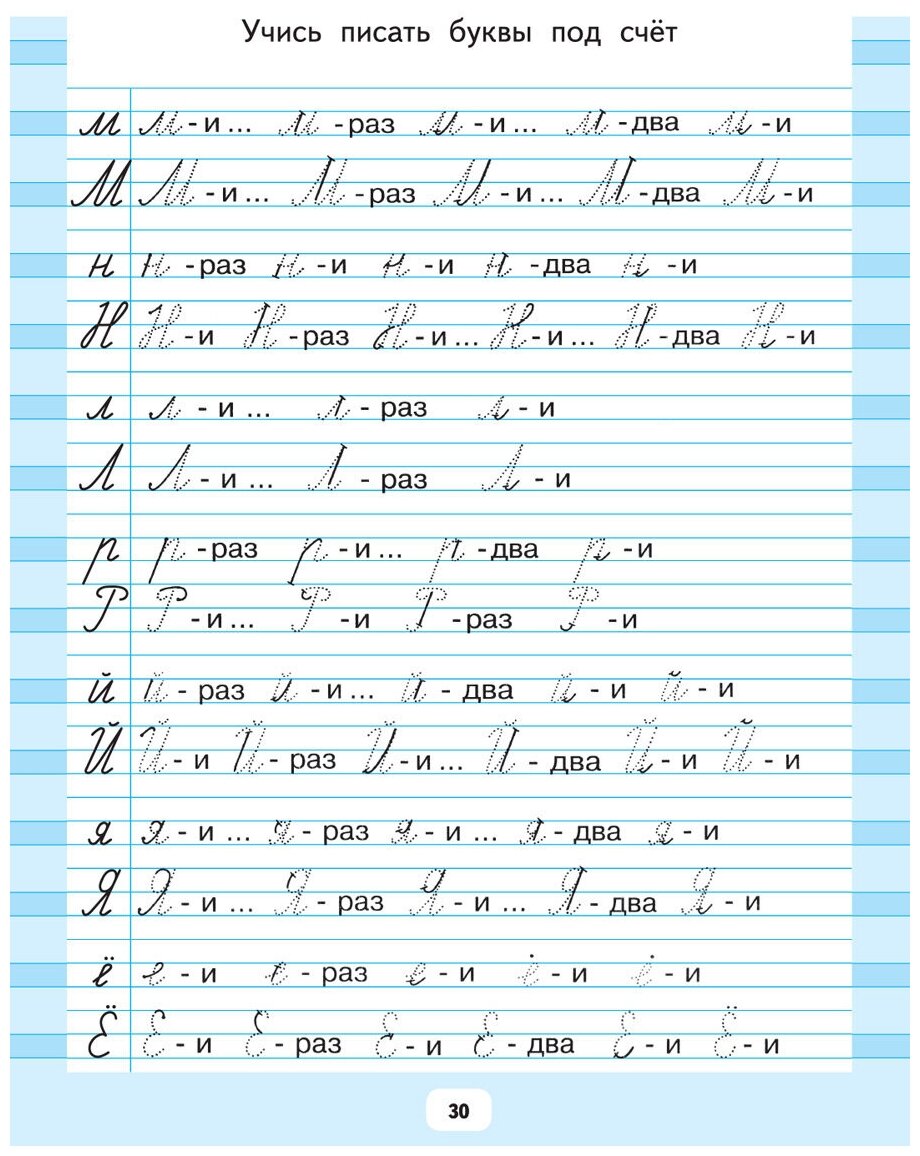 Учись писать буквы под счёт
м м - и ... м - раз м - и ... м - два м - и
М М - и ... М - раз М - и ... М - два М - и
н н - раз н - и н - и н - два н - и
Н Н - и Н - раз Н - и ... Н - и ... Н - два Н - и
л л - и ... л - раз л - и
Л Л - и ... Л - раз Л - и
р р - раз р - и ... р - два р - и
Р Р - и ... Р - и Р - раз Р - и
й й - раз й - и ... й - два й - и й - и
Й Й - и Й - раз Й - и ... Й - два Й - и Й - и
я я - и ... я - раз я - и ... я - два я - и
Я Я - и ... Я - раз Я - и ... Я - два Я - и
ё е - и е - раз е - и ё - и ё - и
Ё Ё - и Ё - раз Ё - и Ё - два Ё - и Ё - и
30